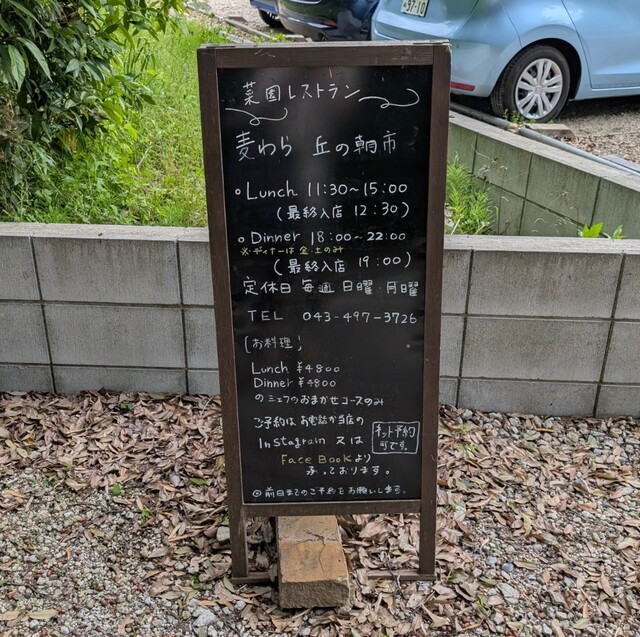 57-10
菜園レストラン
麦わら 丘の朝市
○ Lunch 11:30~15:00
(最終入店 12:30)
○ Dinner 18:00~22:00
※ディナーは金・土のみ
(最終入店 19:00)
定休日 毎週 日曜 月曜
TEL 043-497-3726
[お料理]
Lunch ¥4800
Dinner ¥4800
のシェフのおまかせコースのみ
ご予約は お電話か当店の
Instagram 又は
Face Bookより
承っております。
ネット予約
可です。
◎前日までのご予約をお願いします。